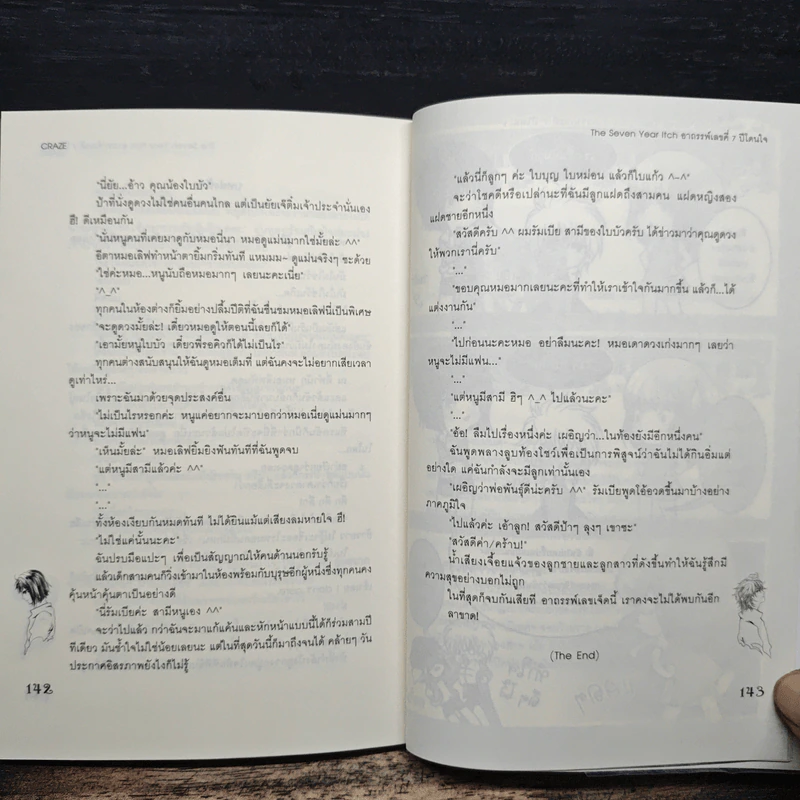 CRAZE
"นี่ยัย...อ้าว คุณน้องใบบัว"
ป้าที่นั่งดูดวงไม่ใช่คนอื่นคนไกล แต่เป็นยัยเจ๊ติ๋มเจ้าประจำนั่นเอง
ฮึ! ดีเหมือนกัน
"นั่นหนูคนที่เคยมาดูกับหมอนี่นา หมอดูแม่นมากใช่มั้ยล่ะ ^^"
อีตาหมอเลิฟทำหน้าตายิ้มกริ่มทันที แหมมม~ ดูแม่นจริงๆ ซะด้วย
"ใช่ค่ะหมอ...หนูนับถือหมอมากๆ เลยนะคะเนี่ย"
"^_^"
ทุกคนในห้องต่างก็ยิ้มอย่างปลื้มปีติที่ฉันชื่นชมหมอเลิฟนี่เป็นพิเศษ
"จะดูดวงมั้ยล่ะ! เดี๋ยวหมอดูให้ตอนนี้เลยก็ได้"
"เอามั้ยหนูใบบัว เดี๋ยวพี่รอคิวก็ได้ไม่เป็นไร"
ทุกคนต่างสนับสนุนให้ฉันดูหมอเต็มที่ แต่ฉันคงจะไม่อยากเสียเวลา
ดูเท่าไหร่...
เพราะฉันมาด้วยจุดประสงค์อื่น
"ไม่เป็นไรหรอกค่ะ หนูแค่อยากจะมาบอกว่าหมอเนี่ยดูแม่นมากๆ
ว่าหนูจะไม่มีแฟน"
"เห็นมั้ยล่ะ" หมอเลิฟยิ้มยิงฟันทันทีที่ฉันพูดจบ
"แต่หนูมีสามีแล้วค่ะ ^^"
"..."
"..."
ทั้งห้องเงียบกันหมดทันที ไม่ได้ยินแม้แต่เสียงลมหายใจ ฮึ!
"ไม่ใช่แค่นั้นนะคะ"
ฉันปรบมือแปะๆ เพื่อเป็นสัญญาณให้คนด้านนอกรับรู้
แล้วเด็กสามคนก็วิ่งเข้ามาในห้องพร้อมกับบุรุษอีกผู้หนึ่งซึ่งทุกคนคง
คุ้นหน้าคุ้นตาเป็นอย่างดี
"นี่รัมเบียค่ะ สามีหนูเอง ^^"
จะว่าไปแล้ว กว่าฉันจะมาแก้แค้นและหักหน้าแบบนี้ได้ก็ร่วมสามปี
ทีเดียว มันช้ำใจไม่ใช่น้อยเลยนะ แต่ในที่สุดวันนี้ก็มาถึงจนได้ คล้ายๆ วัน
ประกาศอิสรภาพยังไงก็ไม่รู้
142
The Seven Year Itch อาถรรพ์เลขที่ 7 ปีโดนใจ
"แล้วนี่ก็ลูกๆ ค่ะ ใบบุญ ใบหม่อน แล้วก็ใบแก้ว ^-^"
จะว่าโชคดีหรือเปล่านะที่ฉันมีลูกแฝดถึงสามคน แฝดหญิงสอง
แฝดชายอีกหนึ่ง
"สวัสดีครับ ^^ ผมรัมเบีย สามีของใบบัวครับ ได้ข่าวมาว่าคุณดูดวง
ให้พวกเรานี่ครับ"
"..."
"ขอบคุณหมอมากเลยนะคะที่ทำให้เราเข้าใจกันมากขึ้น แล้วก็...ได้
แต่งงานกัน"
"..."
"ไปก่อนนะคะหมอ อย่าลืมนะคะ! หมอเดาดวงเก่งมากๆ เลยว่า
หนูจะไม่มีแฟน..."
"..."
"แต่หนูมีสามี ฮิๆ ^_^ ไปแล้วนะคะ"
"..."
"อ้อ! ลืมไปเรื่องหนึ่งค่ะ เผอิญว่า...ในท้องยังมีอีกหนึ่งคน"
ฉันพูดพลางลูบท้องโชว์เพื่อเป็นการพิสูจน์ว่าฉันไม่ได้กินอิ่มแต่
อย่างใด แค่ฉันกำลังจะมีลูกเท่านั้นเอง
"เผอิญว่าพ่อพันธุ์ดีน่ะครับ ^^" รัมเบียพูดโอ้อวดขึ้นมาบ้างอย่าง
ภาคภูมิใจ
"ไปแล้วค่ะ เอ้าลูก! สวัสดีป้าๆ ลุงๆ เขาซะ"
"สวัสดีค่า/คร้าบ!"
น้ำเสียงเจื้อยแจ้วของลูกชายและลูกสาวที่ดังขึ้นทำให้ฉันรู้สึกมี
ความสุขอย่างบอกไม่ถูก
ในที่สุดก็จบกันเสียที อาถรรพ์เลขเจ็ดนี้ เราคงจะไม่ได้พบกันอีก
ลาขาด!
(The End)
143